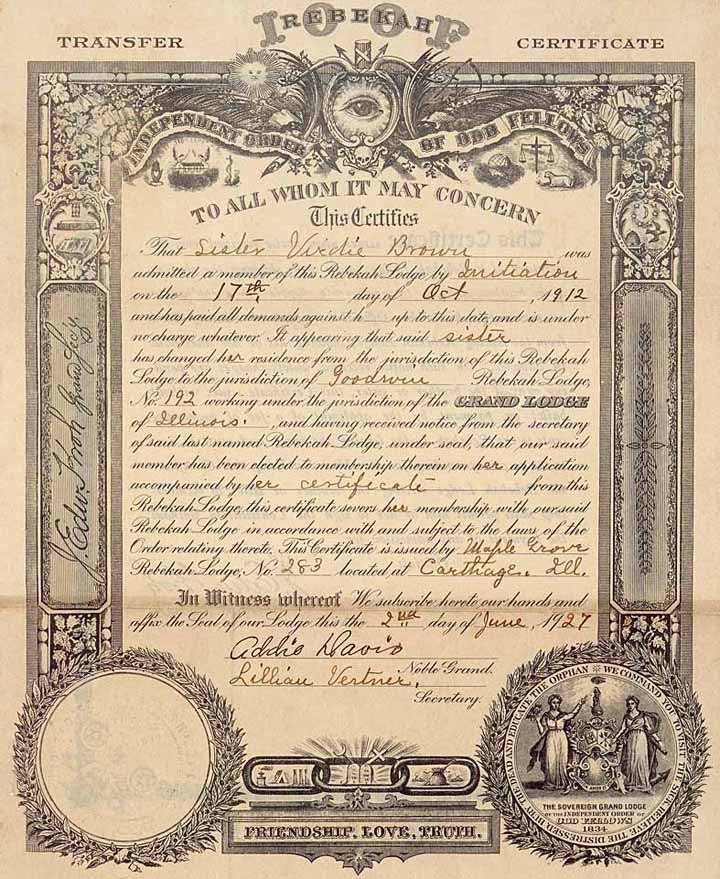 IOOF
REBEKAH
TRANSFER CERTIFICATE
INDEPENDENT ORDER OF ODD FELLOWS
TO ALL WHOM IT MAY CONCERN
This Certifies
That Sister Virdie Brown was
admitted a member of this Rebekah Lodge by Initiation
on the 17th day of Oct, 1912
and has paid all demands against h up to this date, and is under
no charge whatever. It appearing that said sister
has changed her residence from the jurisdiction of this Rebekah
Lodge to the jurisdiction of Goodwin Rebekah Lodge,
No. 192 working under the jurisdiction of the GRAND LODGE
of Illinois., and having received notice from the secretary
of said last named Rebekah Lodge, under seal, that our said
member has been elected to membership therein on her application
accompanied by her certificate from this
Rebekah Lodge, this certificate severs her membership with our said
Rebekah Lodge in accordance with and subject to the laws of the
Order relating thereto. This Certificate is issued by Maple Grove
Rebekah Lodge, No. 283 located at Carthage. Ill.
In Witness whereof We subscribe hereto our hands and
affix the Seal of our Lodge this the 2nd day of June, 1927
Addie Davis
Noble Grand.
Lillian Vertner.
Secretary.
J. Edw. Kroh Grand Sec'y.
WE COMMAND YOU TO VISIT THE SICK RELIEVE THE DISTRESSED BURY THE DEAD AND EDUCATE THE ORPHAN
THE SOVEREIGN GRAND LODGE
OF THE INDEPENDENT ORDER OF
ODD FELLOWS
1834
FRIENDSHIP, LOVE, TRUTH.